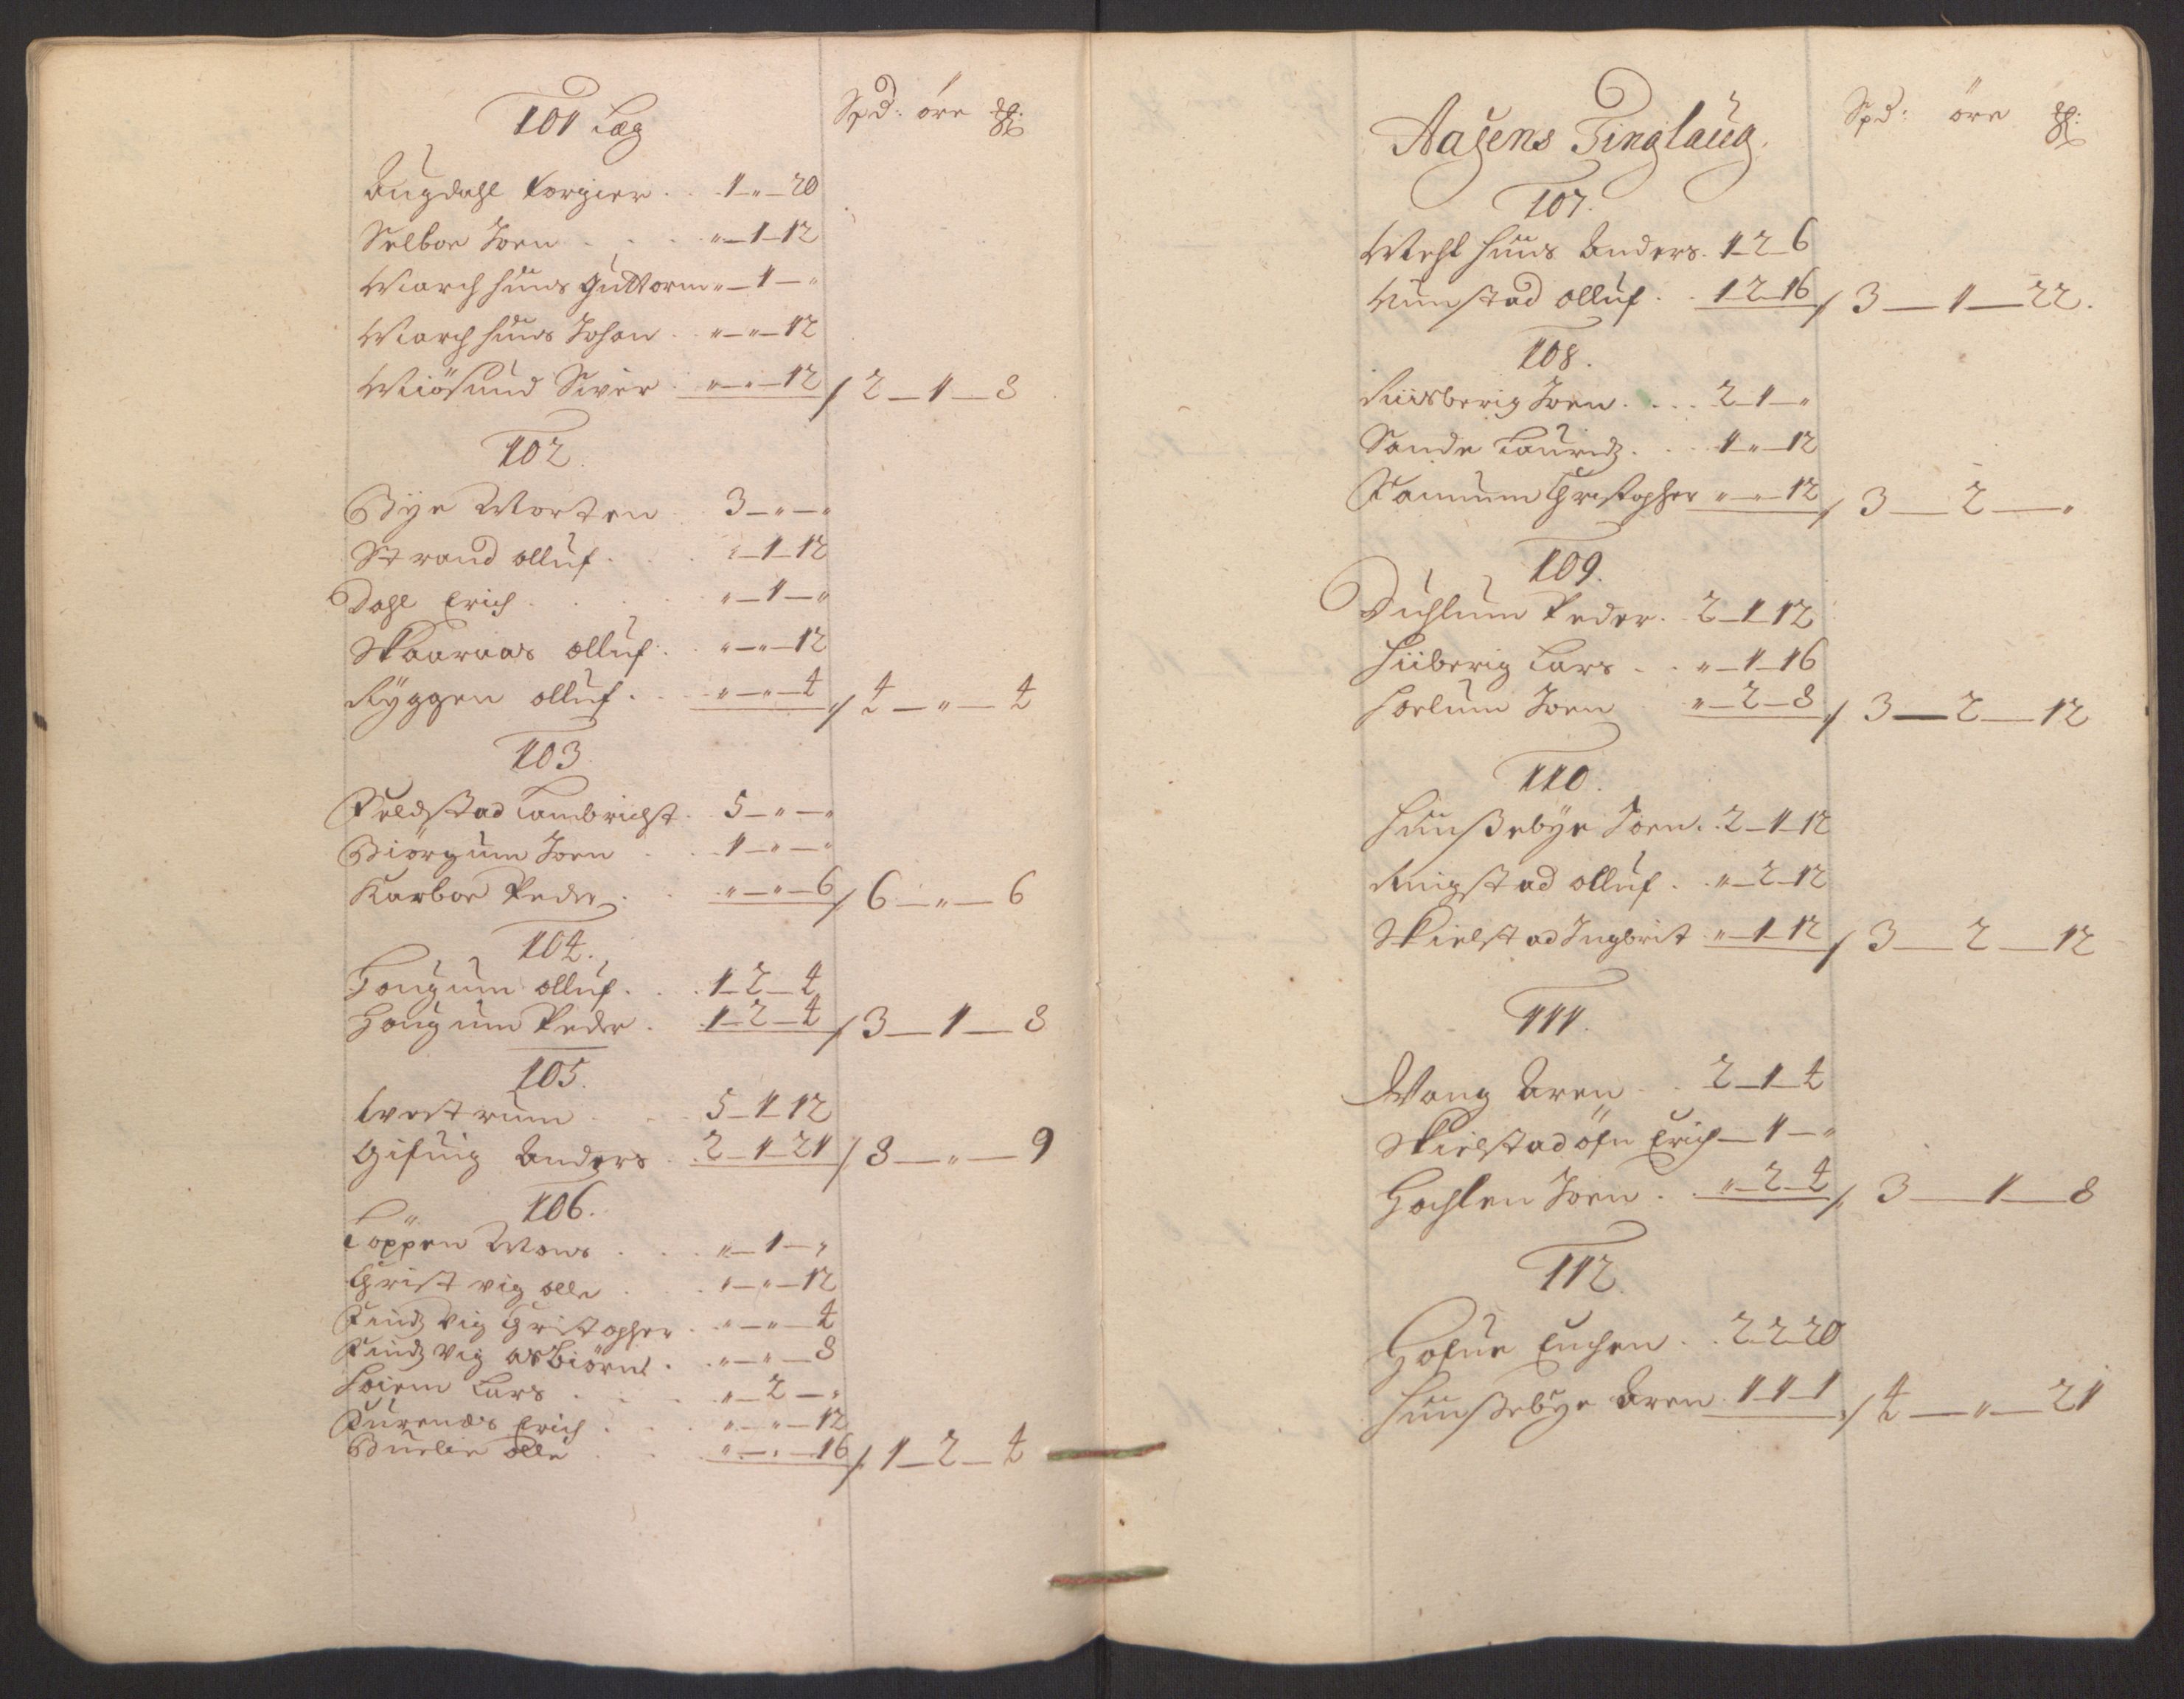 101 Læg
Spd: öre ₰:
Augdahl Torgier . . 1 " 20
Selboe Joen . . . "-1-12
March huus Guttorm "-1-"
March huus Johan . . "-"-12
Miösund Siver . "-"-12 / 2-1-8
102.
Bÿe Morten . . 3-"-"
Strand olluf . . . "-1-12
Dahl Erich . . . . "-1-"
Skaanas olluf . . "-"-12
Rÿggen olluf . . "-"-4 / 4-"-4
103.
Feldstad Lambricht . 5-"-"
Biörgum Joen . . 1-"-"
Karboe Peder . . "-"-6 / 6-"-6
104.
Hougum olluf . . . 1-2-4
Hougum Peder . 1-2-4 / 3-1-8
105.
Evestrum . . . 5-1-12
Gifuig Anders . 2-1-21 / 8-"-9
106.
Loppen Mons . . . "-1-"
Christ vig olle . . "-"-12
Find vig Christopher . "-"-4
Find vig Asbiörn . . "-"-8
Hoiem Lars . . . "-2-"
Furenæs Erich . . . "-"-12
Buelie olle . . "-"-16 / 1-2-4
Aasens Tinglaug.
Spd: öre ₰:
107.
Mehl huus Anders . 1-2-6
Vunstad olluf . . 1-2-16 / 3-1-22.
108.
Riisberig Joen . . . . 2-1-"
Sande Lauridz . . . 1-"-12
Fainum Christopher "-"-12 / 3-2-"
109.
Vuhlum Peder . . 2-1-12
Hiiberig Lars . . "-1-16
Hoelum Joen "-2-8 / 3-2-12
110.
Huußebÿe Joen . . 2-1-12
Ringstad olluf . . "-2-12
Skielstad Ingbrit . "-1-12 / 3-2-12
111.
Wang Aren . . 2-1-4
Skielstad öfu Erich-1-"
Hochlen Joen . . "-2-4 / 3-1-8
112.
Hofue Euchen . . 2-2-20
Huußebÿe Aren . 1-1-1 / 4-"-21